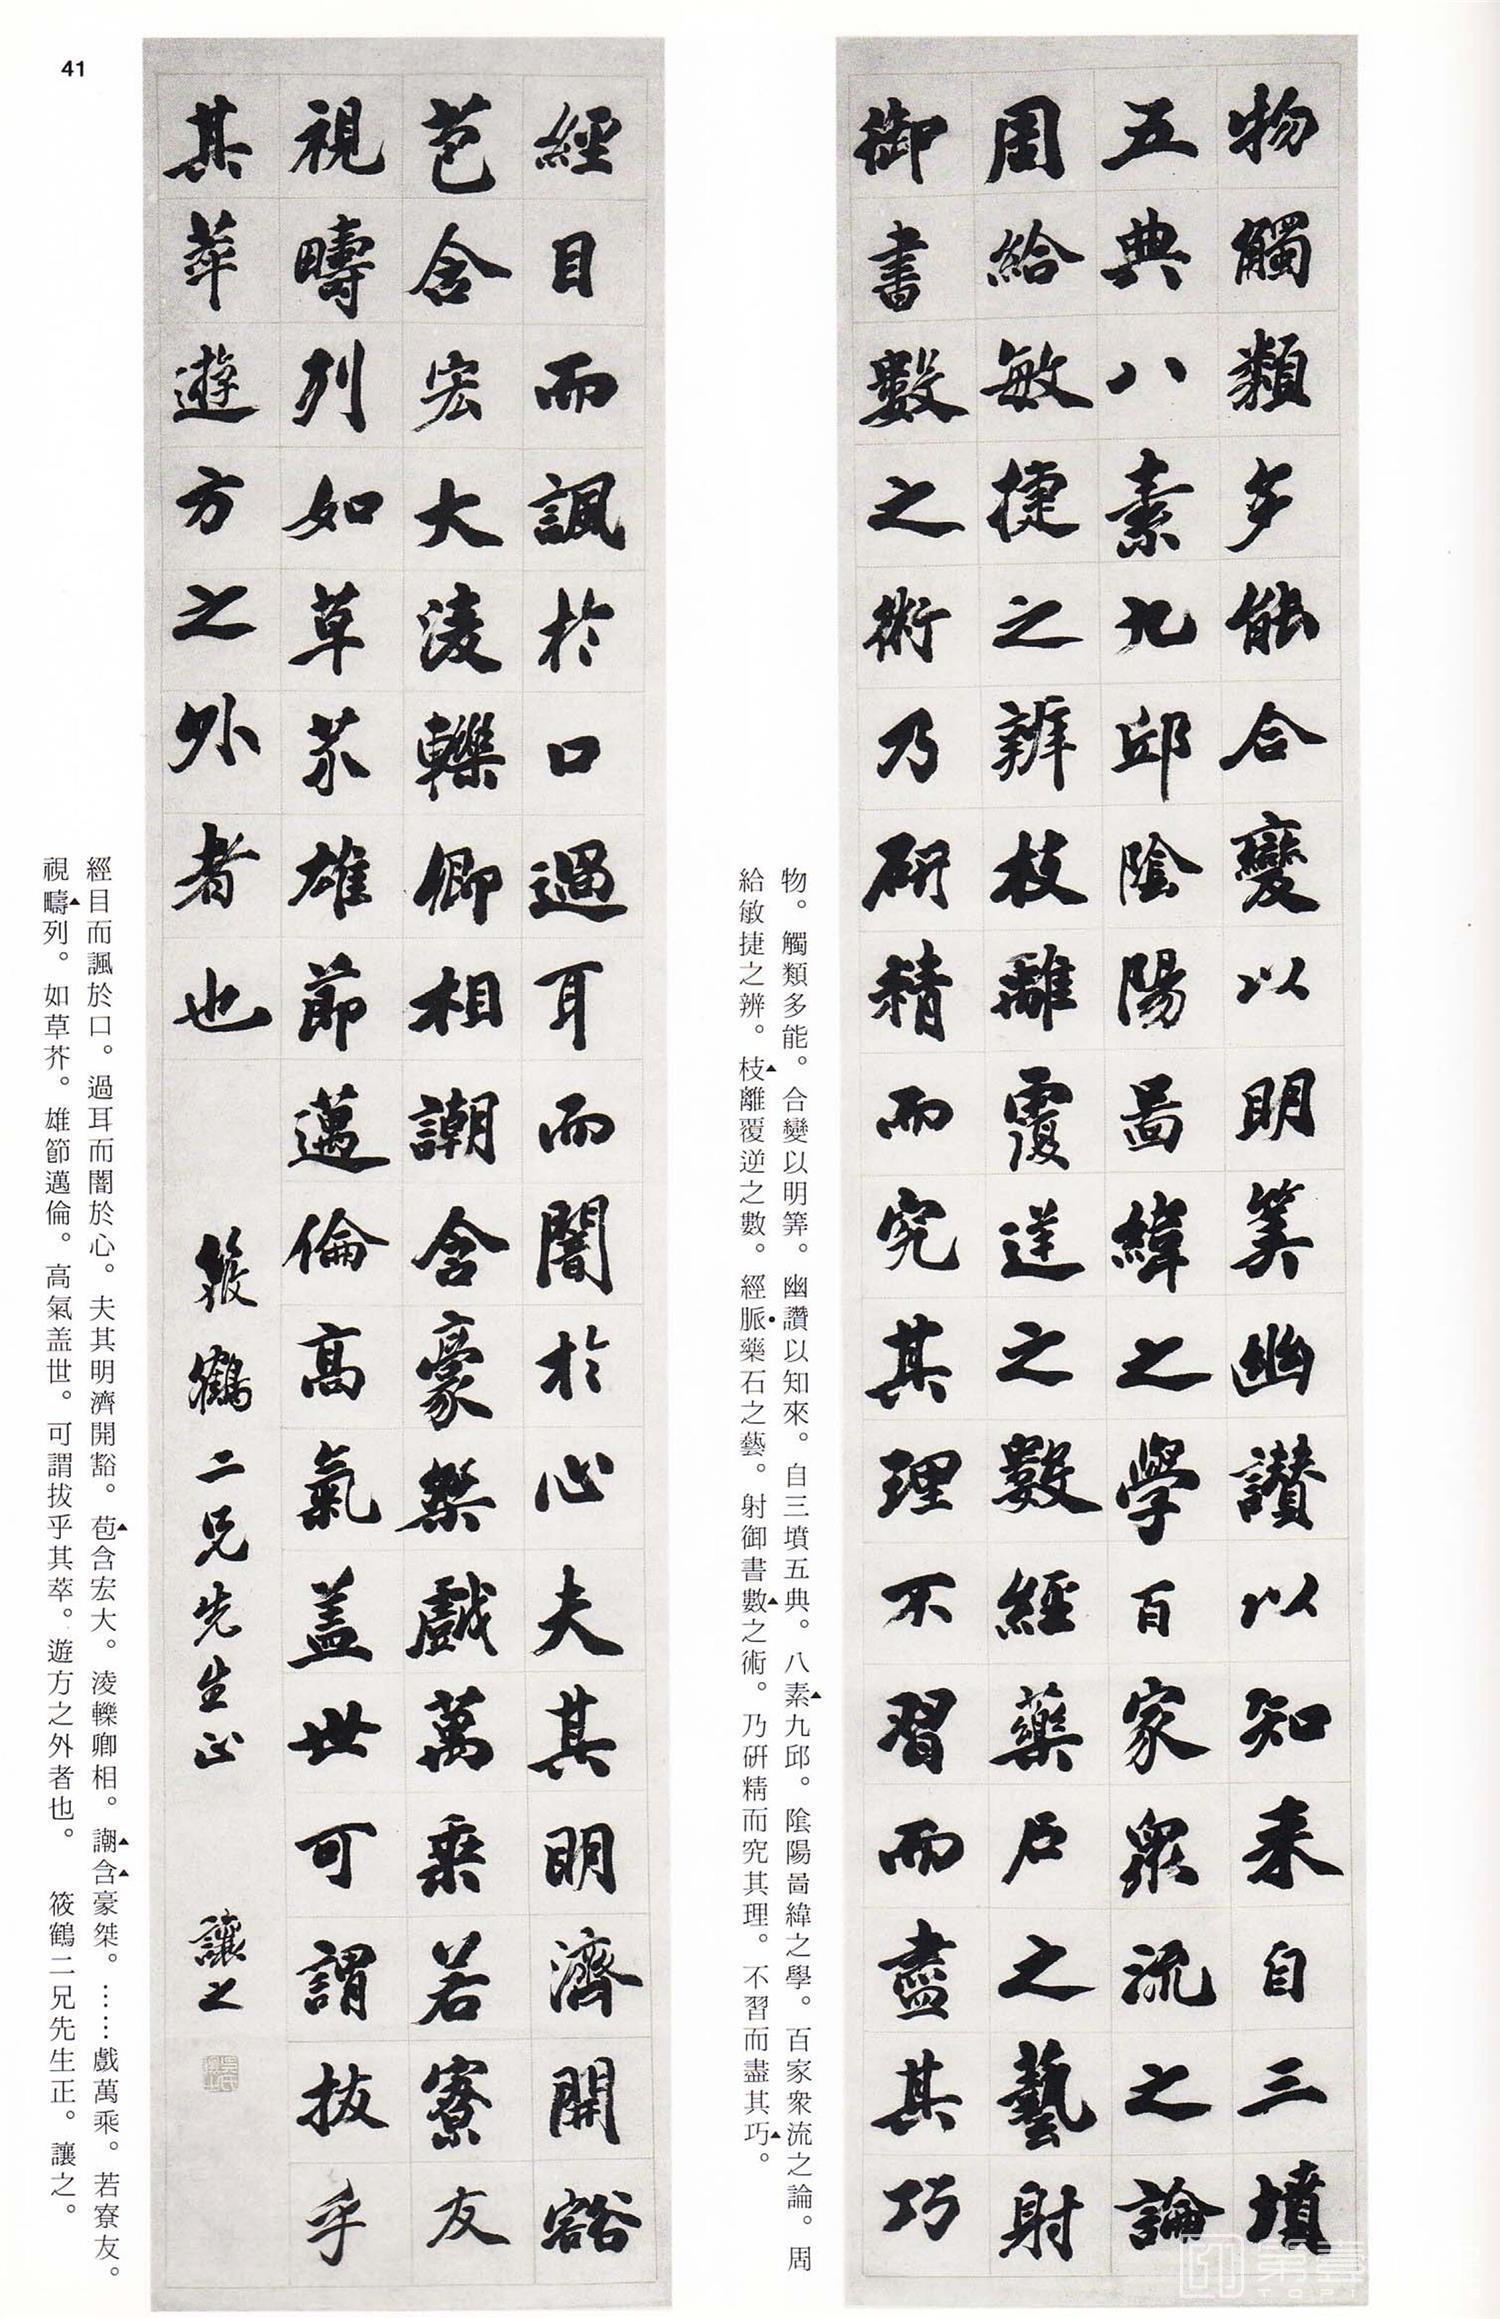 物觸類多能合變以明筭幽讚以知来自三墳
五典八素九邱陰陽啚緯之學百家衆流之論
周給敏捷之辨枝離覆逆之數經藥石之藝射
御書數之術乃研精而究其理不習而盡其巧
物。觸類多能。合變以明筭。幽讚以知來。自三墳五典。八素九邱。陰陽啚緯之學。百家衆流之論。周
給敏捷之辨。枝離覆逆之數。經脈藥石之藝。射御書數之術。乃研精而究其理。不習而盡其巧。
經目而諷於口過耳而闇於心夫其明濟開豁
苞含宏大淩轢卿相謿含豪桀戲萬乘若寮友
視疇列如草芥雄節邁倫高氣盖世可謂拔乎
其萃遊方之外者也
筱鶴二兄先生正 讓之
經目而諷於口。過耳而闇於心。夫其明濟開豁。苞含宏大。淩轢卿相。謿含豪桀。……戲萬乘。若寮友。
視疇列。如草芥。雄節邁倫。高氣盖世。可謂拔乎其萃。遊方之外者也。 筱鶴二兄先生正。讓之。
41
第壹
TOP1